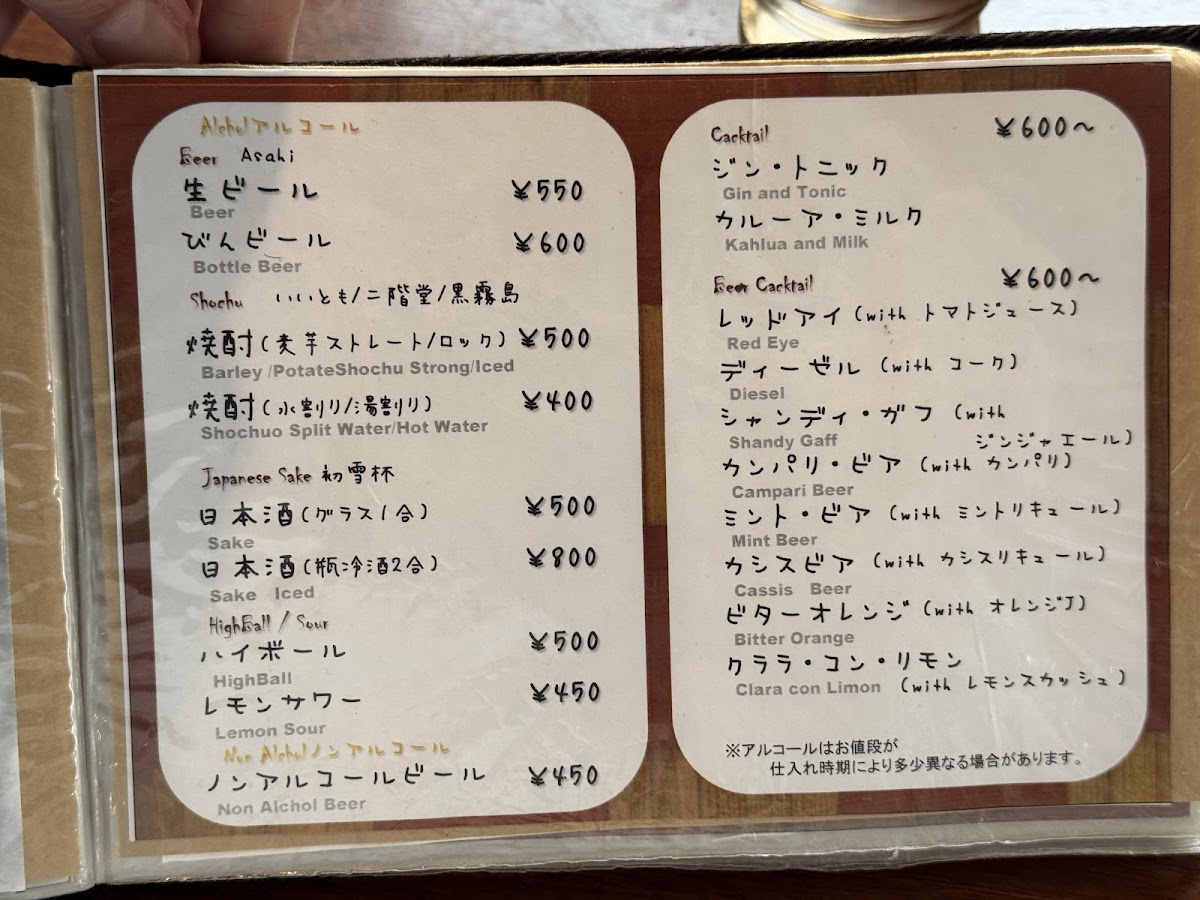 Alcholアルコール
Beer Asahi
生ビール ¥550
Beer
びんビール ¥600
Bottle Beer
Shochu いいとも/二階堂/黒霧島
焼酎(麦芋ストレート/ロック) ¥500
Barley /PotateShochu Strong/Iced
焼酎(水割り/湯割り) ¥400
Shochuo Split Water/Hot Water
Japanese Sake 初雪杯
日本酒(グラス1合) ¥500
Sake
日本酒(瓶冷酒2合) ¥800
Sake Iced
HighBall / Sour
ハイボール ¥500
HighBall
レモンサワー ¥450
Lemon Sour
Non Alcholノンアルコール
ノンアルコールビール ¥450
Non Alchol Beer
Cacktail ¥600～
ジン・トニック
Gin and Tonic
カルーア・ミルク
Kahlua and Milk
Beer Cacktail ¥600～
レッドアイ (with トマトジュース)
Red Eye
ディーゼル (with コーク)
Diesel
シャンディ・ガフ (with
Shandy Gaff ジンジャエール)
カンパリ・ビア (with カンパリ)
Campari Beer
ミント・ビア (with ミントリキュール)
Mint Beer
カシスビア (with カシスリキュール)
Cassis Beer
ビターオレンジ (with オレンジJ)
Bitter Orange
クララ・コン・リモン
Clara con Limon (with レモンスカッシュ)
※アルコールはお値段が
仕入れ時期により多少異なる場合があります。